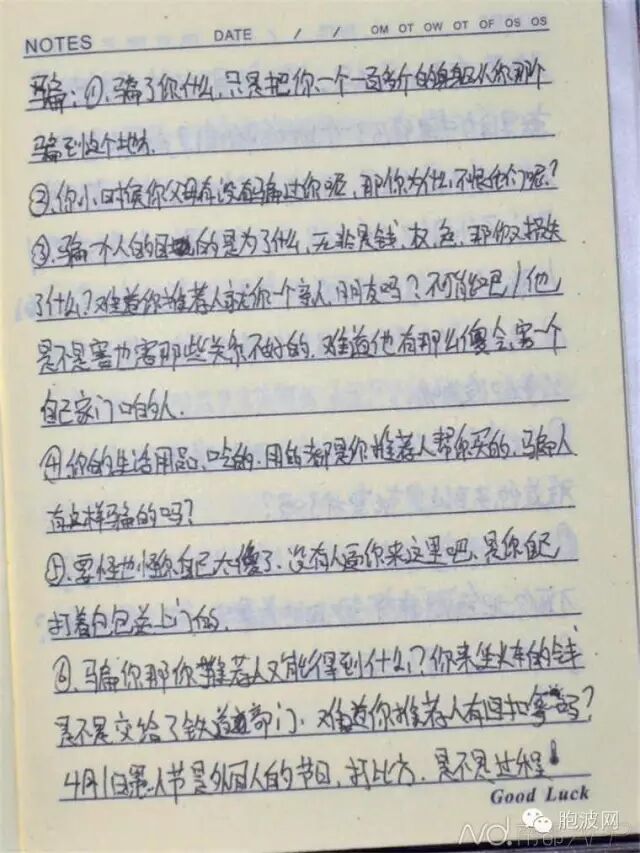 NOTES DATE / / OM OT OW OT OF OS OS
骗：①、骗了你什么，只是把你一个一百多斤的身躯从你那个
骗到这个地方.
②、你小时候你父母有没有骗过你呢，那你为什么不恨他们呢？
③、骗一个人的目的是为了什么，无非是钱，权，色，那你又损失
了什么？难道你推荐人就你一个亲人，朋友吗？不可能吧！他
是不是害也害那些关系不好的，难道他有那么傻会害一个
自己家门口的人.
④、你的生活用品、吃的，用的都是你推荐人帮你买的，骗人
有这样骗的吗？
⑤、要怪也怪你自己太傻了，没有人逼你来这里吧，是你自己
打着包包送上门的.
⑥、骗你那你推荐人又能得到什么？你来坐火车的钱
是不是交给了铁道部门，难道你推荐人有回扣拿吗？
4月1日愚人节是外国人的节日，打比方，是不是过程！
Good Luck
胞波网